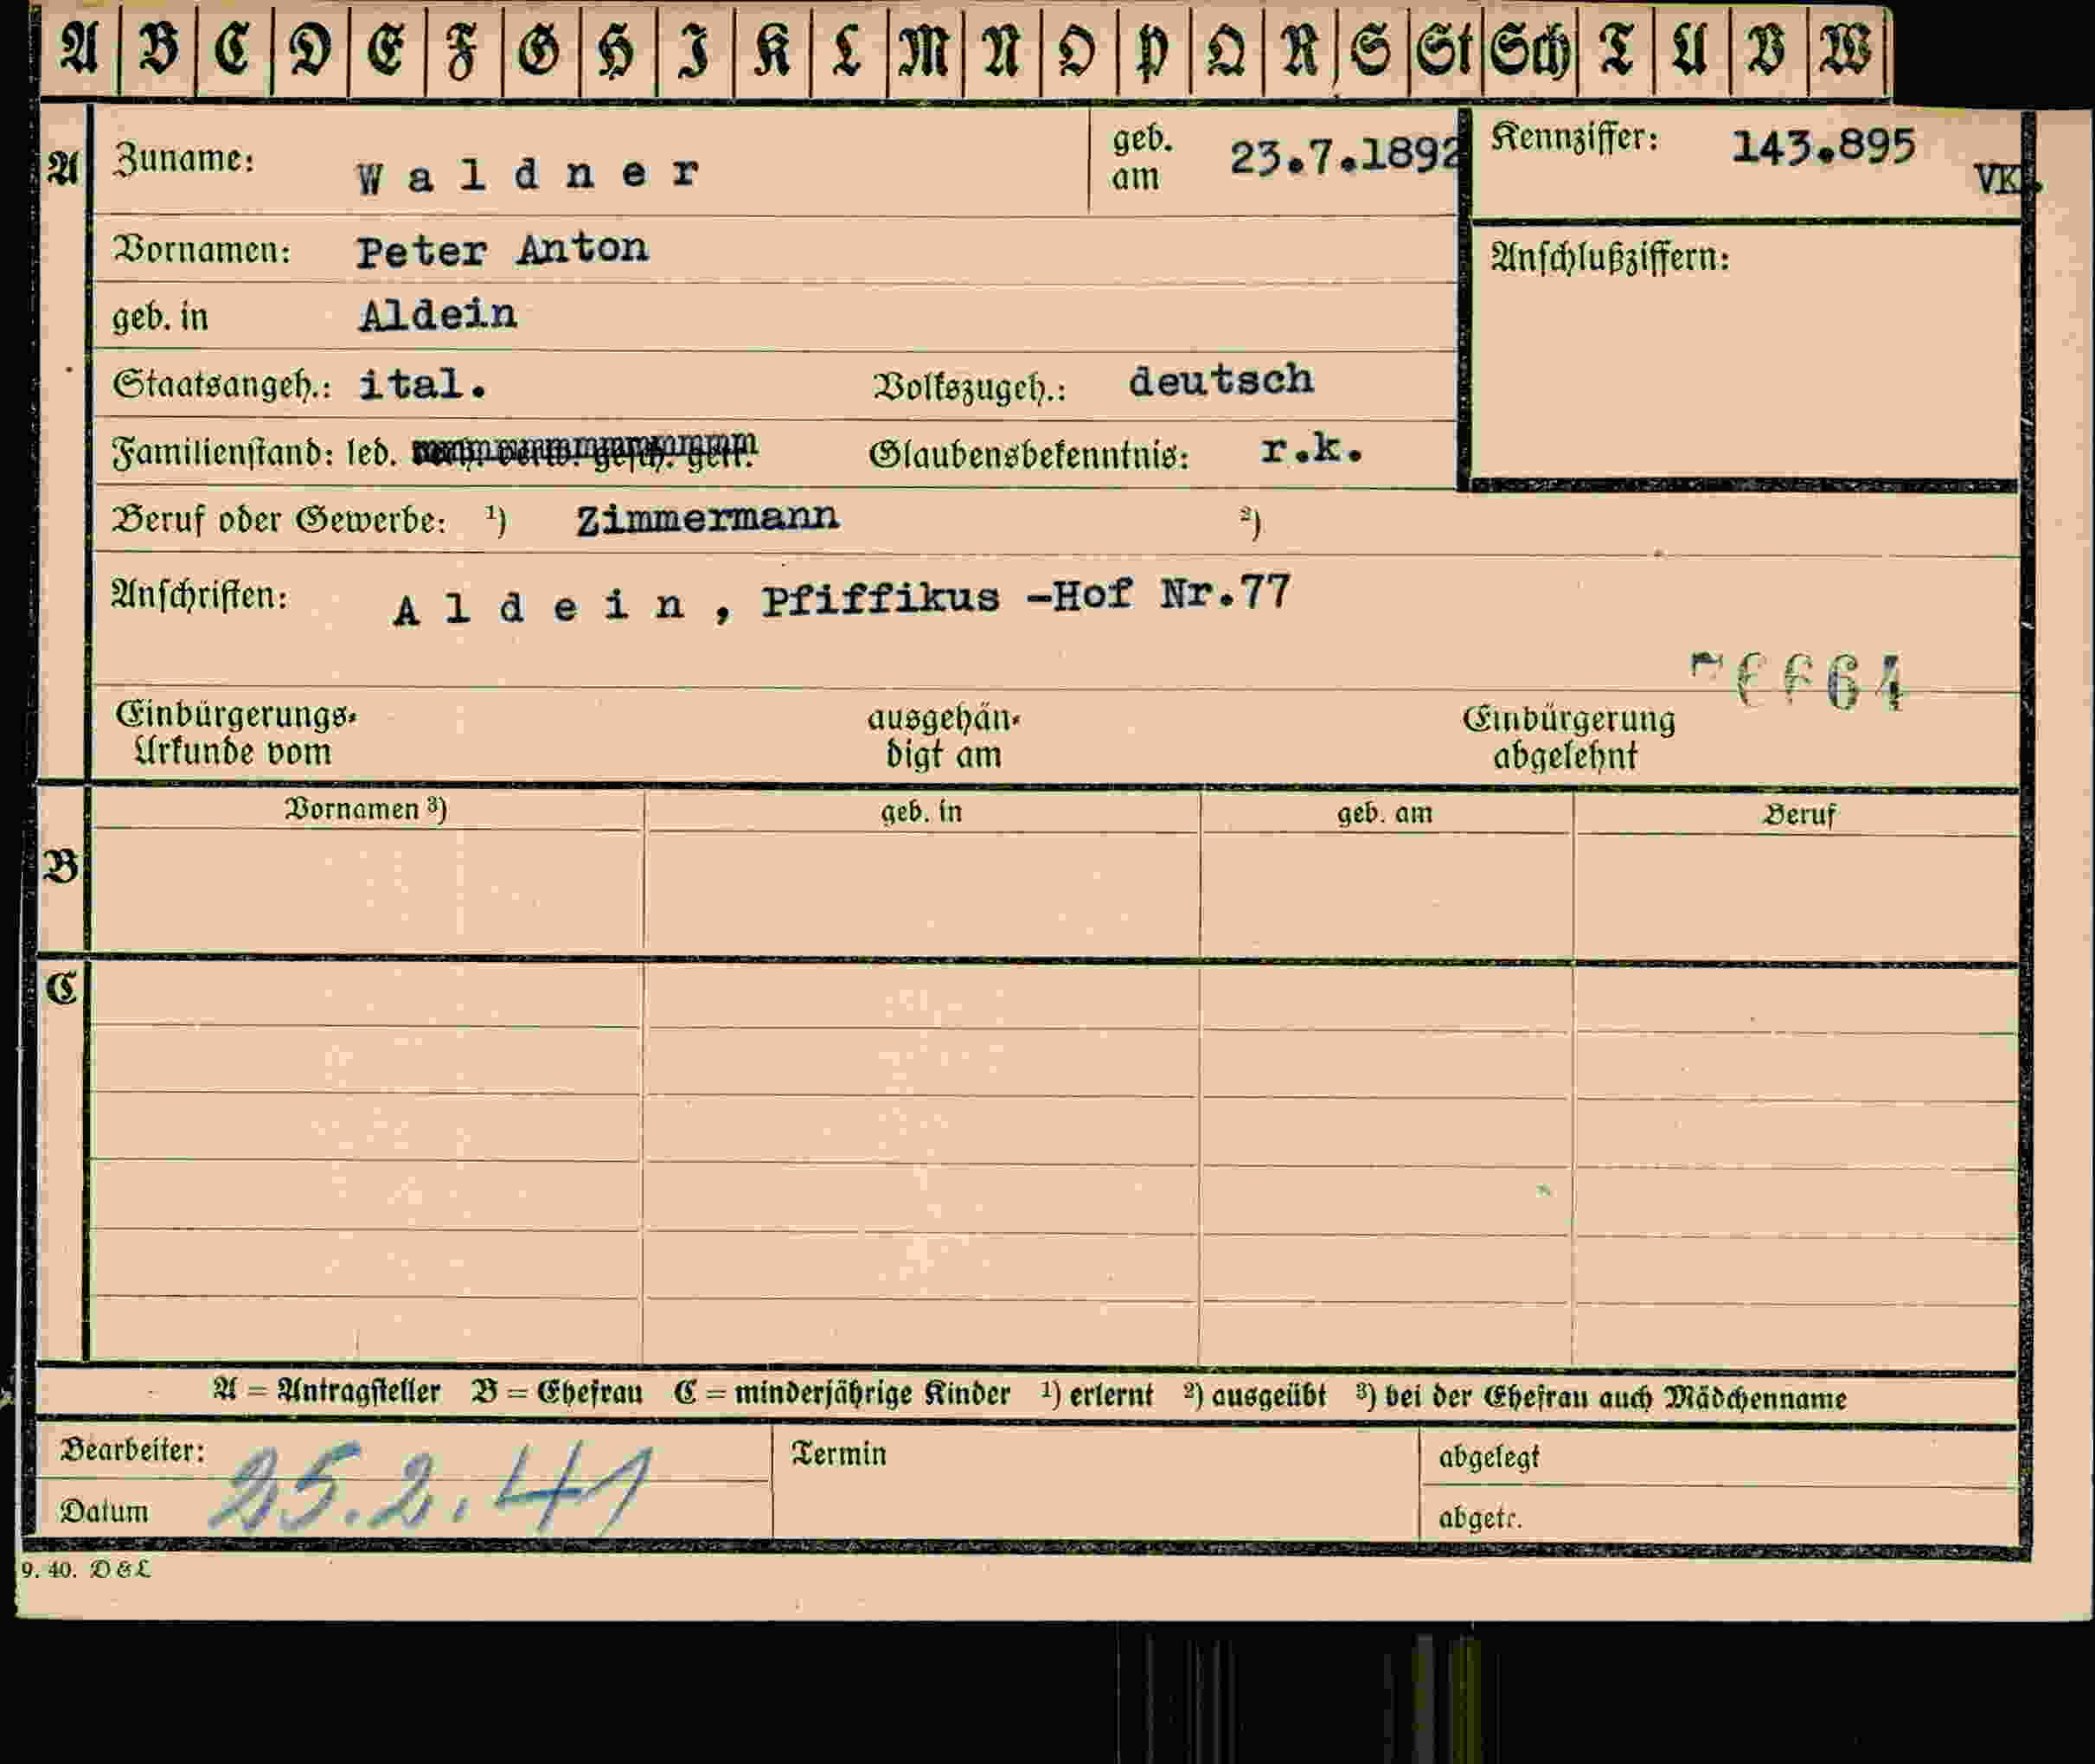 A B C D E F G H I K L M N O P Q R S St Sch T U V W
A Zuname: Waldner geb. am 23.7.1892 Kennziffer: 143.895 VK.
Vornamen: Peter Anton Anschlußziffern:
geb. in Aldein
Staatsangeh.: ital. Volkszugeh.: deutsch
Familienstand: led. verh. verw. gesch. getr. Glaubensbekenntnis: r.k.
Beruf oder Gewerbe: ¹) Zimmermann ²)
Anschriften: Aldein, Pfiffikus -Hof Nr.77
Einbürgerungs- ausgehän- Einbürgerung
Urkunde vom digt am abgelehnt
Vornamen ³) geb. in geb. am Beruf
B
C
A = Antragsteller B = Ehefrau C = minderjährige Kinder ¹) erlernt ²) ausgeübt ³) bei der Ehefrau auch Mädchenname
Bearbeiter: Termin abgelegt
Datum 25.2.41 abgetr.
9. 40. D & L